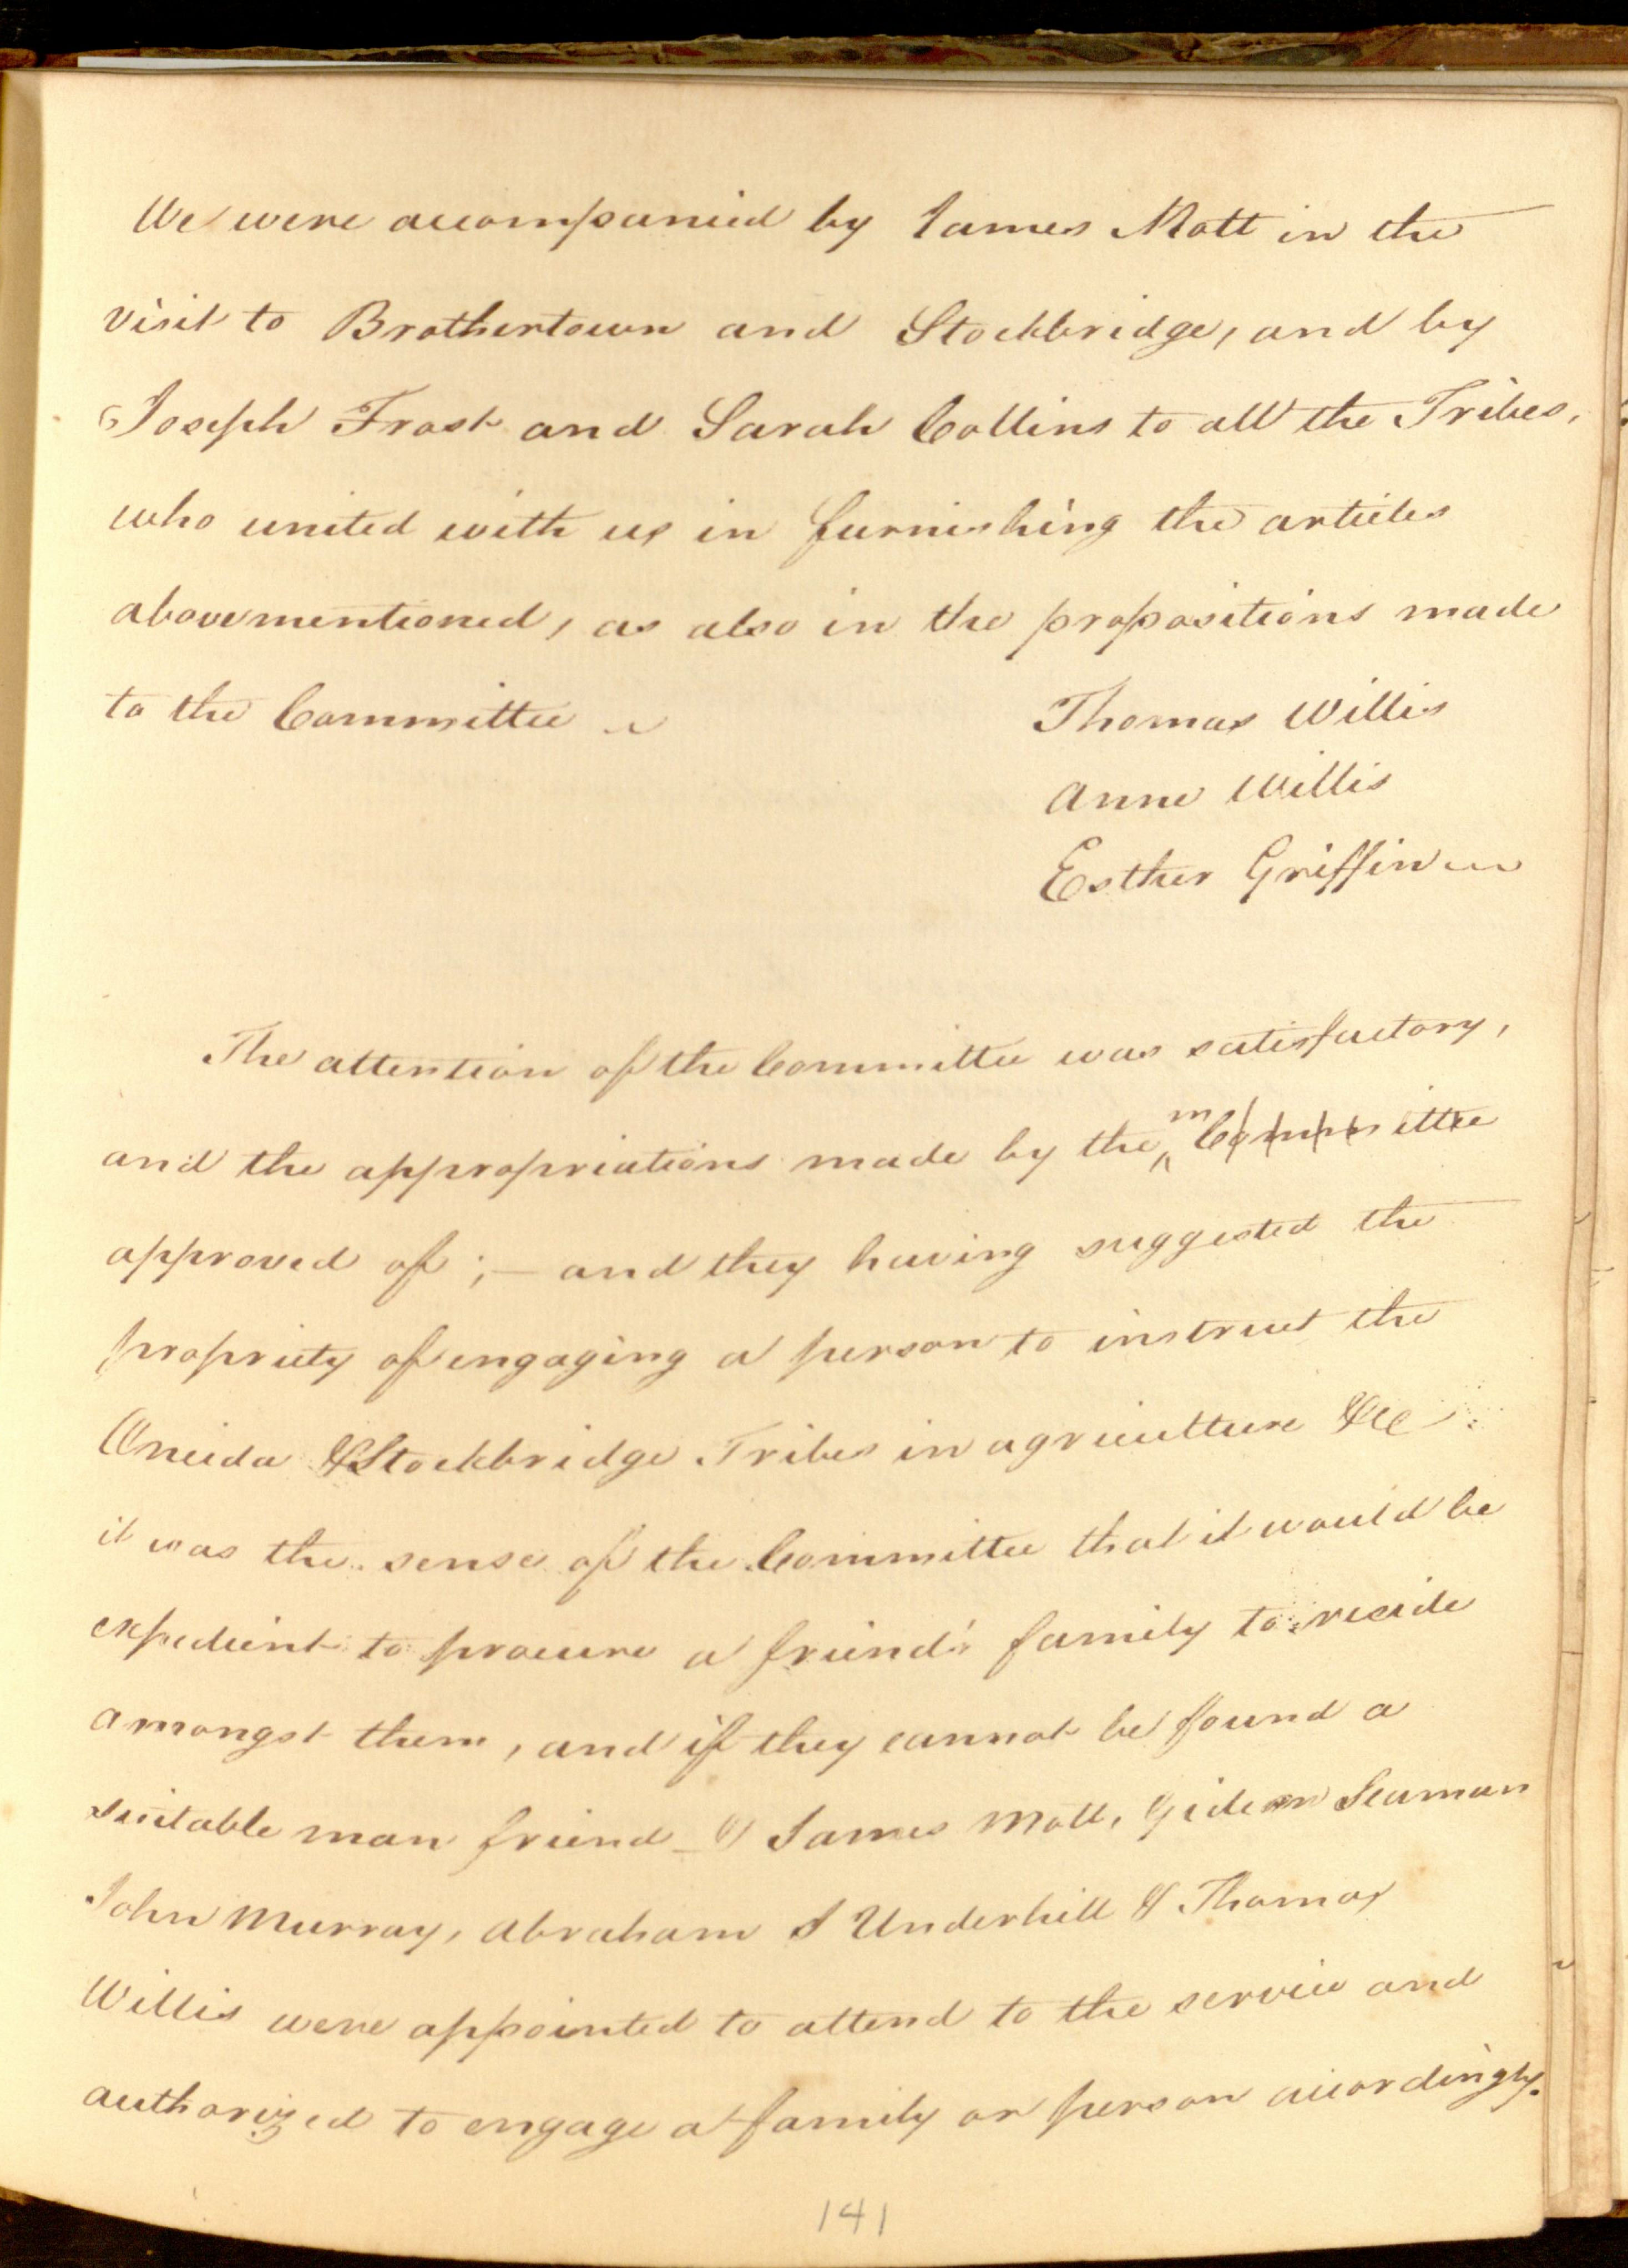 We were accompanied by James Mott in the
visit to Brothertown and Stockbridge, and by
Joseph Frost and Sarah Collins to all the Tribes,
who united with us in furnishing the articles
abovementioned, as also in the propositions made
to the Committee
Thomas Willis
Anne Willis
Esther Griffin
The attention of the Committee was satisfactory,
and the appropriations made by the ^m Committee
approved of ;— and they having suggested the
propriety of engaging a person to instruct the
Oneida & Stockbridge Tribes in agriculture &c
it was the sense of the Committee that it would be
expedient to procure a friend's family to reside
amongst them, and if they cannot be found a
suitable man friend — & James Mott, Gideon Seaman
John Murray, Abraham S Underhill & Thomas
Willis were appointed to attend to the service and
authorized to engage a family or person accordingly.
141